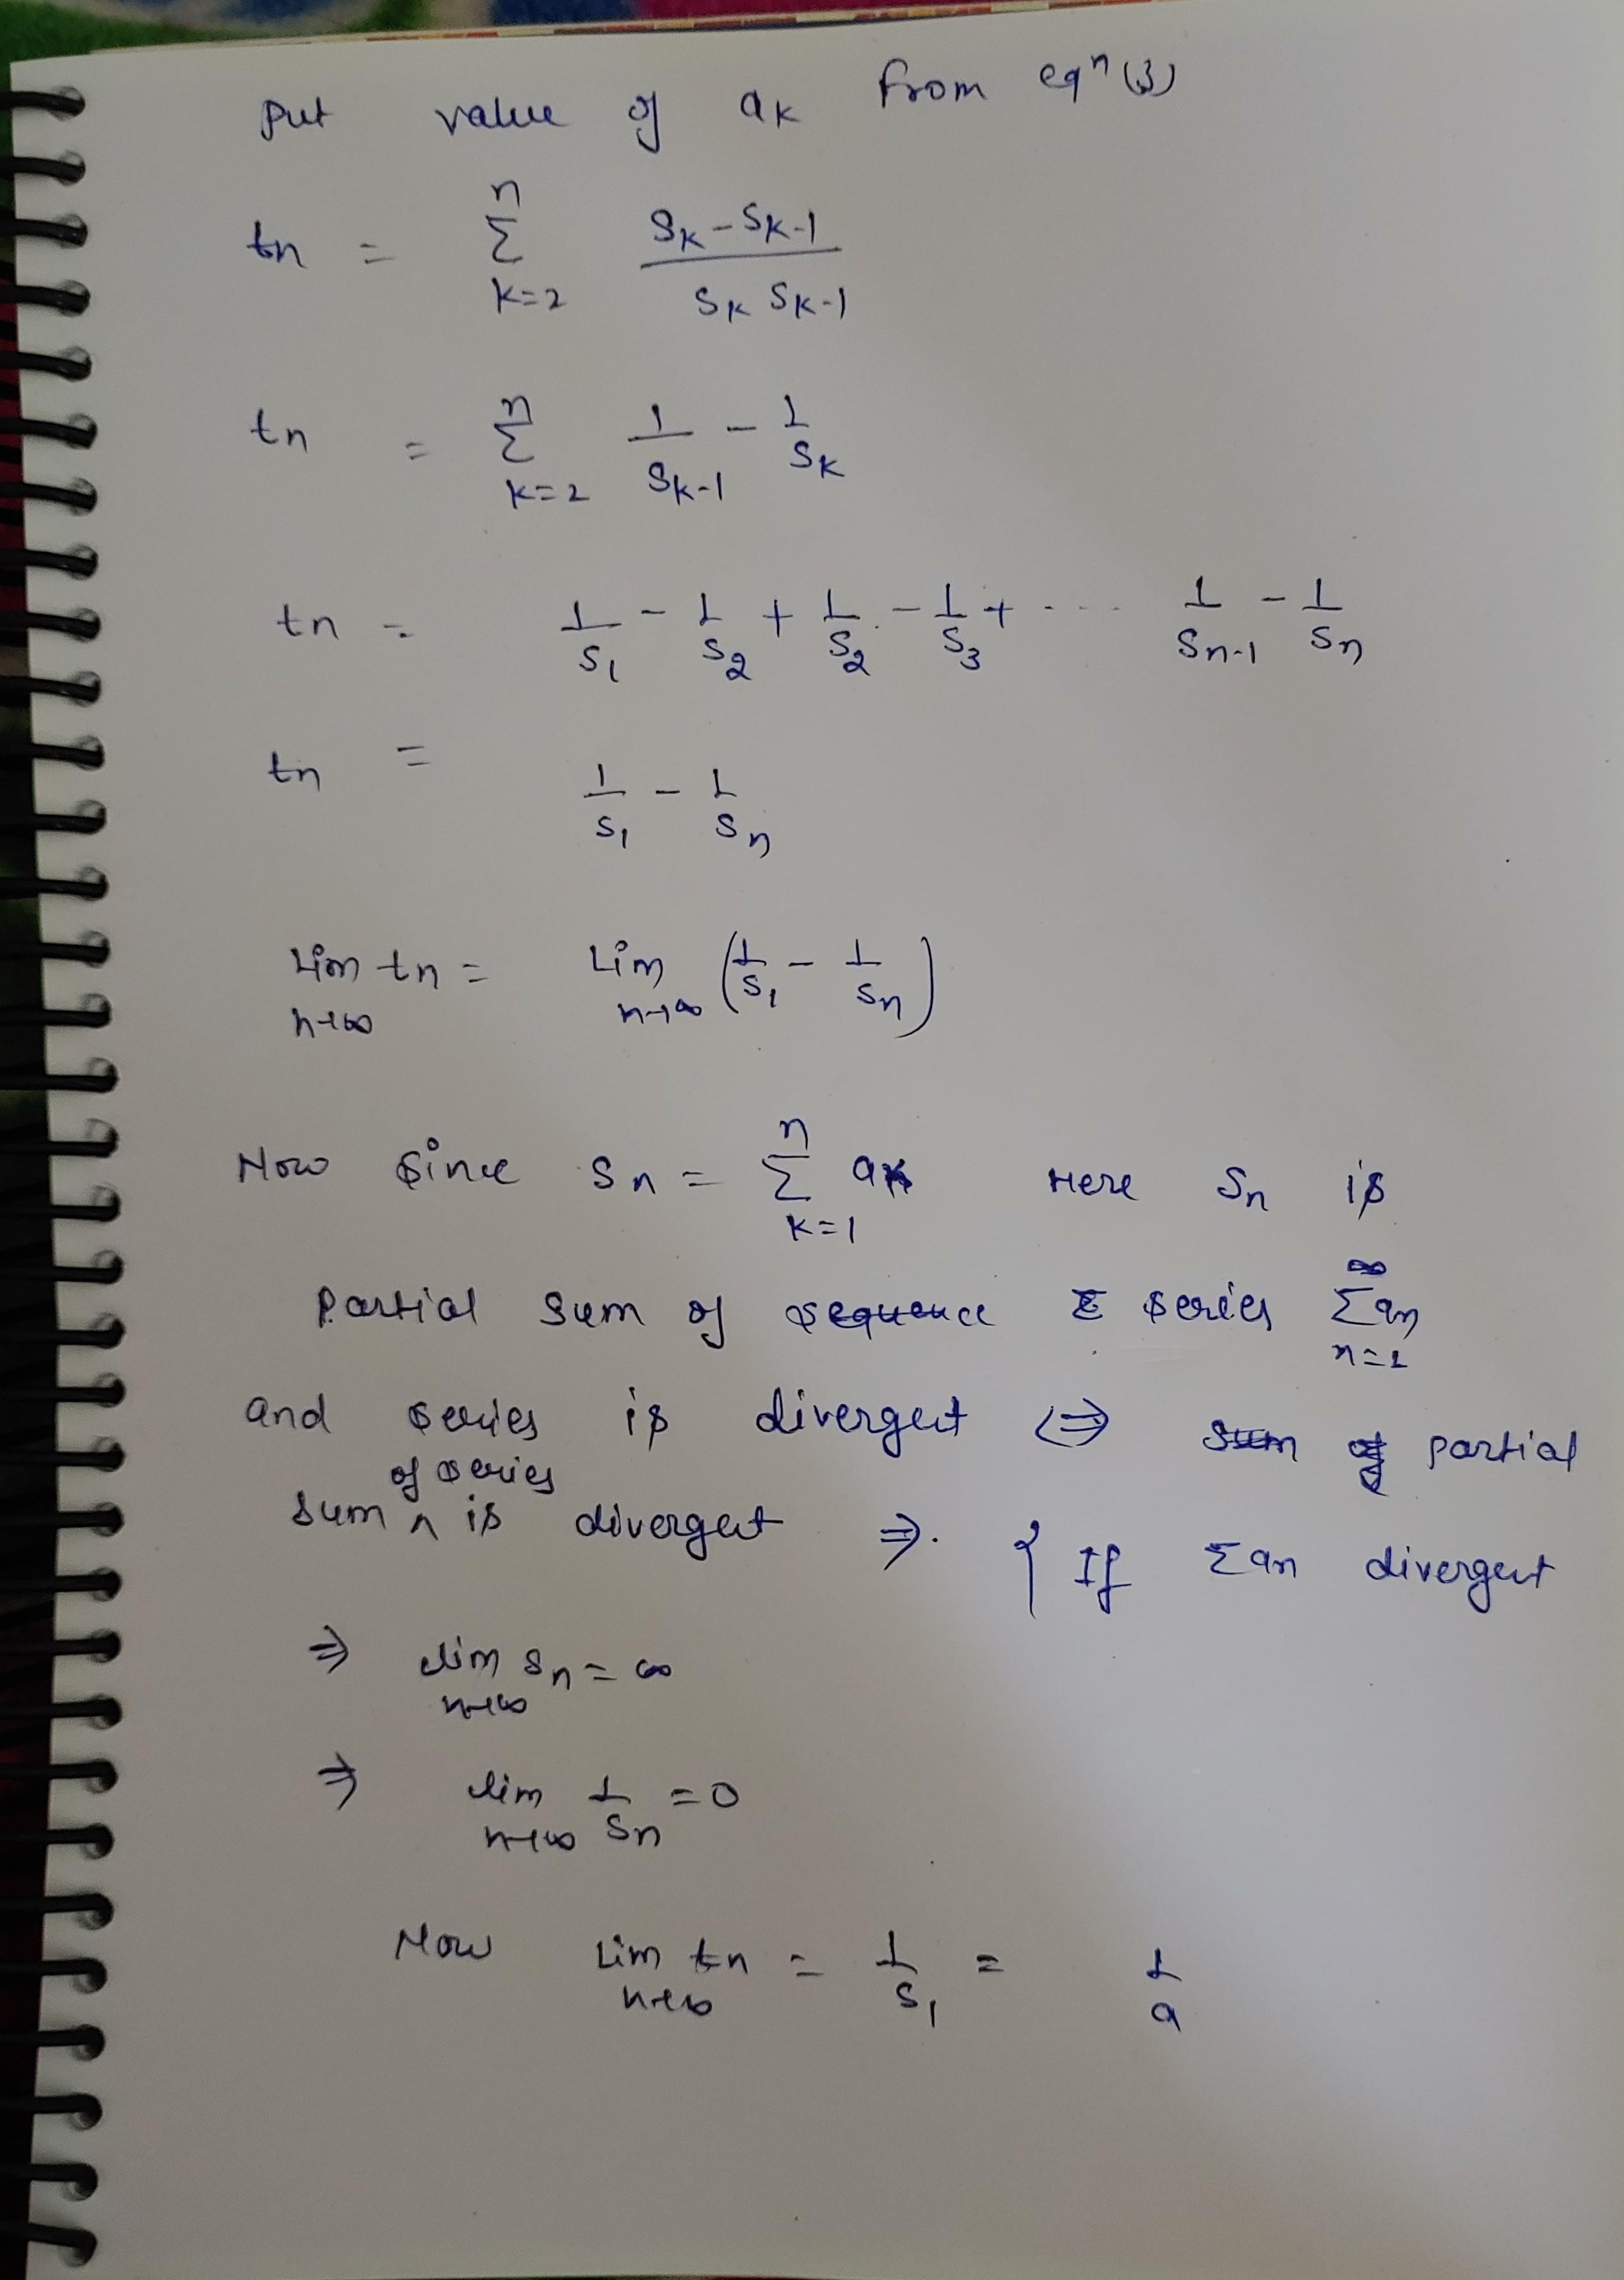 Put value of ak from eqⁿ (3)
tn = Σ_{k=2}^{n} (Sk - Sk-1) / (Sk Sk-1)
tn = Σ_{k=2}^{n} 1/Sk-1 - 1/Sk
tn = 1/S1 - 1/S2 + 1/S2 - 1/S3 + .... 1/Sn-1 - 1/Sn
tn = 1/S1 - 1/Sn
Lim n→∞ tn = Lim n→∞ (1/S1 - 1/Sn)
Now since Sn = Σ_{k=1}^{n} ak Here Sn is
Partial sum of sequence Σ series Σ_{n=1}^{∞} an
and series is divergent ⇔ sum of partial
sum of series is divergent ⇒. { If Σ an divergent
⇒ lim n→∞ Sn = ∞
⇒ lim n→∞ 1/Sn = 0
Now Lim n→∞ tn = 1/S1 = 1/a